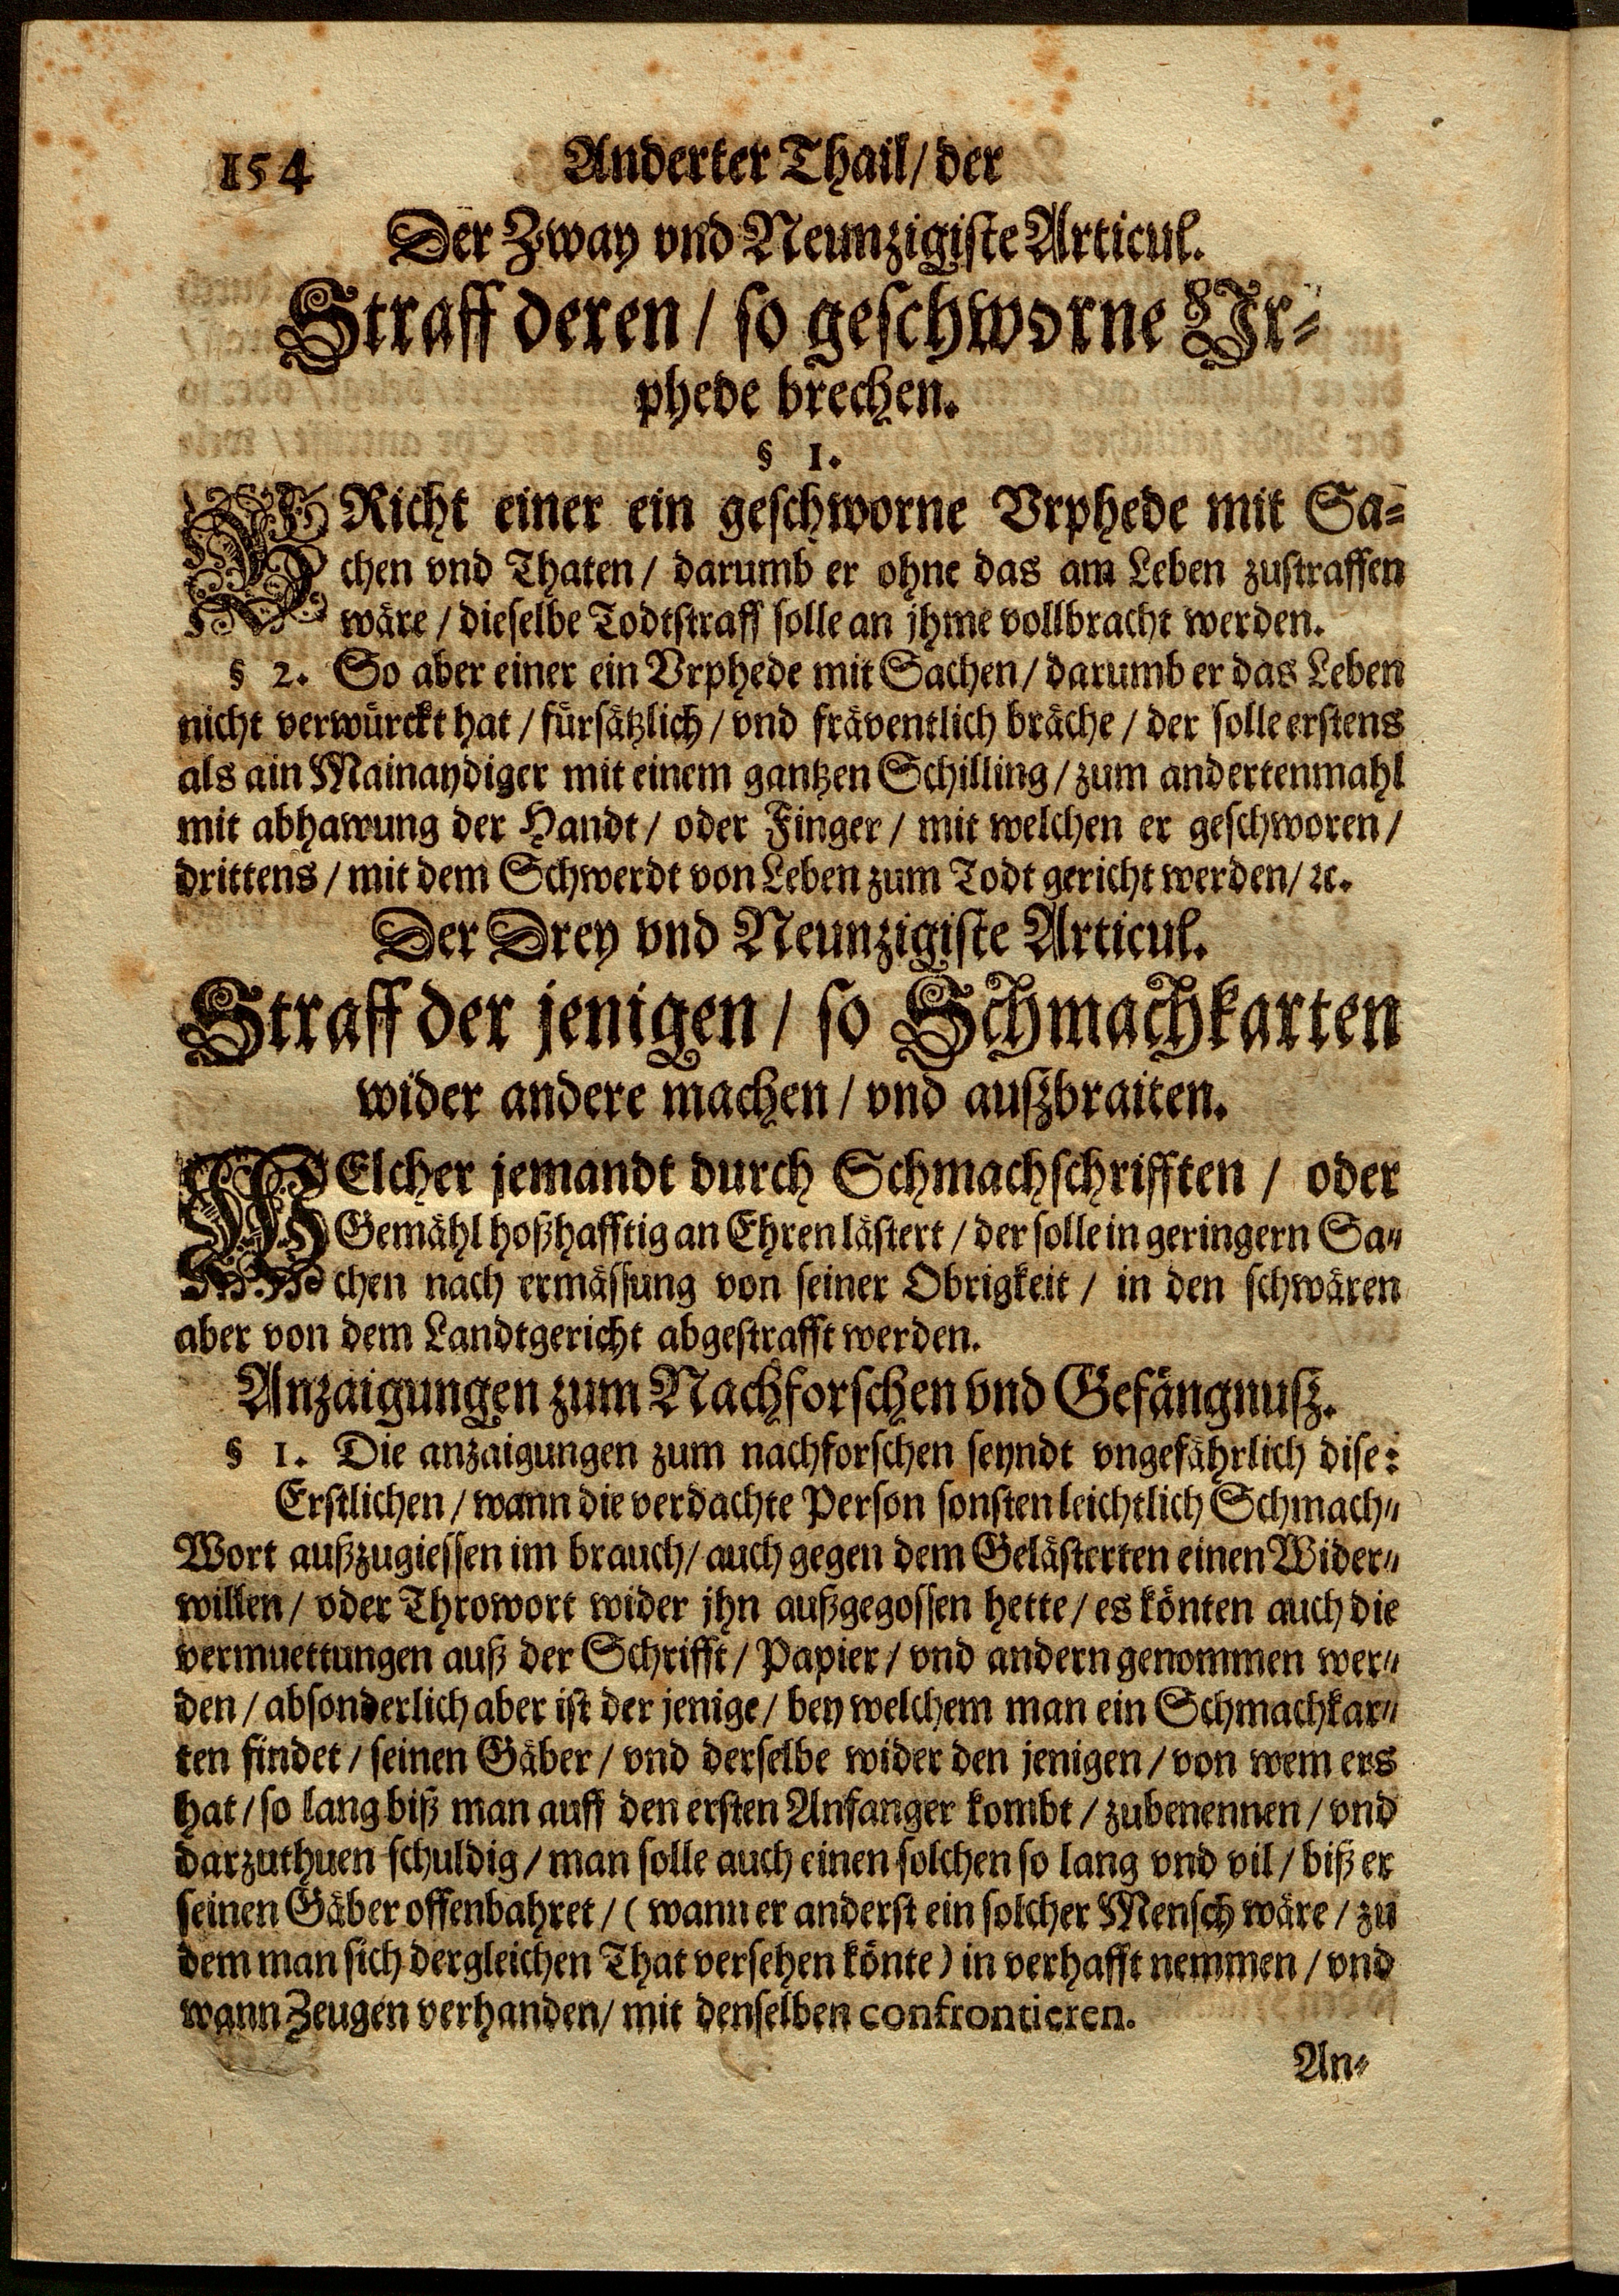 154 Anderter Thail/ der
Der Zway vnd Neunzigiste Articul.
Straff deren / so geschworne Vr-
phede brechen.
§ 1.
BRicht einer ein geschworne Vrphede mit Sa-
chen vnd Thaten / darumb er ohne das am Leben zustraffen
wäre / dieselbe Todtstraff solle an jhme vollbracht werden.
§ 2. So aber einer ein Vrphede mit Sachen / darumb er das Leben
nicht verwürckt hat / fürsätzlich / vnd fräventlich bräche / der solle erstens
als ain Mainaydiger mit einem gantzen Schilling / zum andertenmahl
mit abhawung der Handt / oder Finger / mit welchen er geschworen /
drittens / mit dem Schwerdt von Leben zum Todt gericht werden / ꝛc.
Der Drey vnd Neunzigiste Articul.
Straff der jenigen / so Schmachkarten
wider andere machen / vnd außbraiten.
WElcher jemandt durch Schmachschrifften / oder
Gemähl hoßhafftig an Ehren lästert / der solle in geringern Sa-
chen nach ermässung von seiner Obrigkeit / in den schwären
aber von dem Landtgericht abgestrafft werden.
Anzaigungen zum Nachforschen vnd Gefängnuß.
§ 1. Die anzaigungen zum nachforschen seyndt vngefährlich dise:
Erstlichen / wann die verdachte Person sonsten leichtlich Schmach-
Wort außzugiessen im brauch / auch gegen dem Gelästerten einen Wider-
willen / oder Throwort wider jhn außgegossen hette / es könten auch die
vermuettungen auß der Schrifft / Papier / vnd andern genommen wer-
den / absonderlich aber ist der jenige / bey welchem man ein Schmachkar-
ten findet / seinen Gäber / vnd derselbe wider den jenigen / von wem ers
hat / so lang biß man auff den ersten Anfanger kombt / zubenennen / vnd
darzuthuen schuldig / man solle auch einen solchen so lang vnd vil / biß er
seinen Gäber offenbahret / ( wann er anderst ein solcher Mensch wäre / zu
dem man sich dergleichen That versehen könte ) in verhafft nemmen / vnd
wann Zeugen verhanden / mit denselben confrontieren.
An-